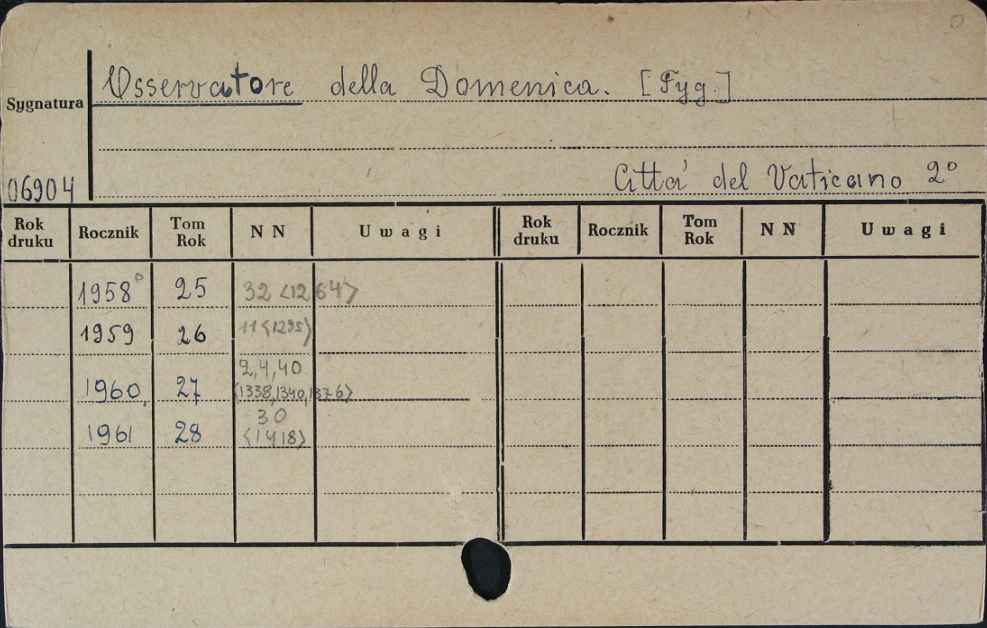 Osservatore della Domenica. [Tyg.]
Sygnatura
06904
Città del Vaticano 2°
Rok druku Rocznik Tom Rok NN Uwagi Rok druku Rocznik Tom Rok NN Uwagi
1958° 25 32 <1264>
1959 26 11 <1295>
1960. 27 2,4,40 <1338,1340,1376>
1961 28 30 <1418>